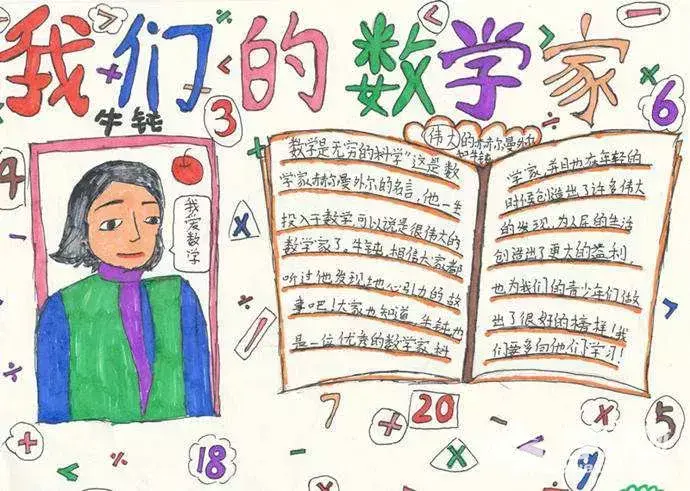 我们的数学家
牛钝
3
6
4
我爱数学
伟大的赫尔曼外尔
和牛钝
"数学是无穷的科学"这是数
学家赫尔曼外尔的名言,他一生
投入于数学可以说是很伟大的
数学家了。牛钝,相信大家都
听过他发现地心引力的故
事吧!大家也知道,牛钝也
是一位优秀的数学家,科
学家,并且也在年轻的
时候创造出了许多伟大
的发现,为人民的生活
创造出了更大的益利,
也为我们的青少年们做
出了很好的榜样!我
们要多向他们学习!
7
20
5
18
9